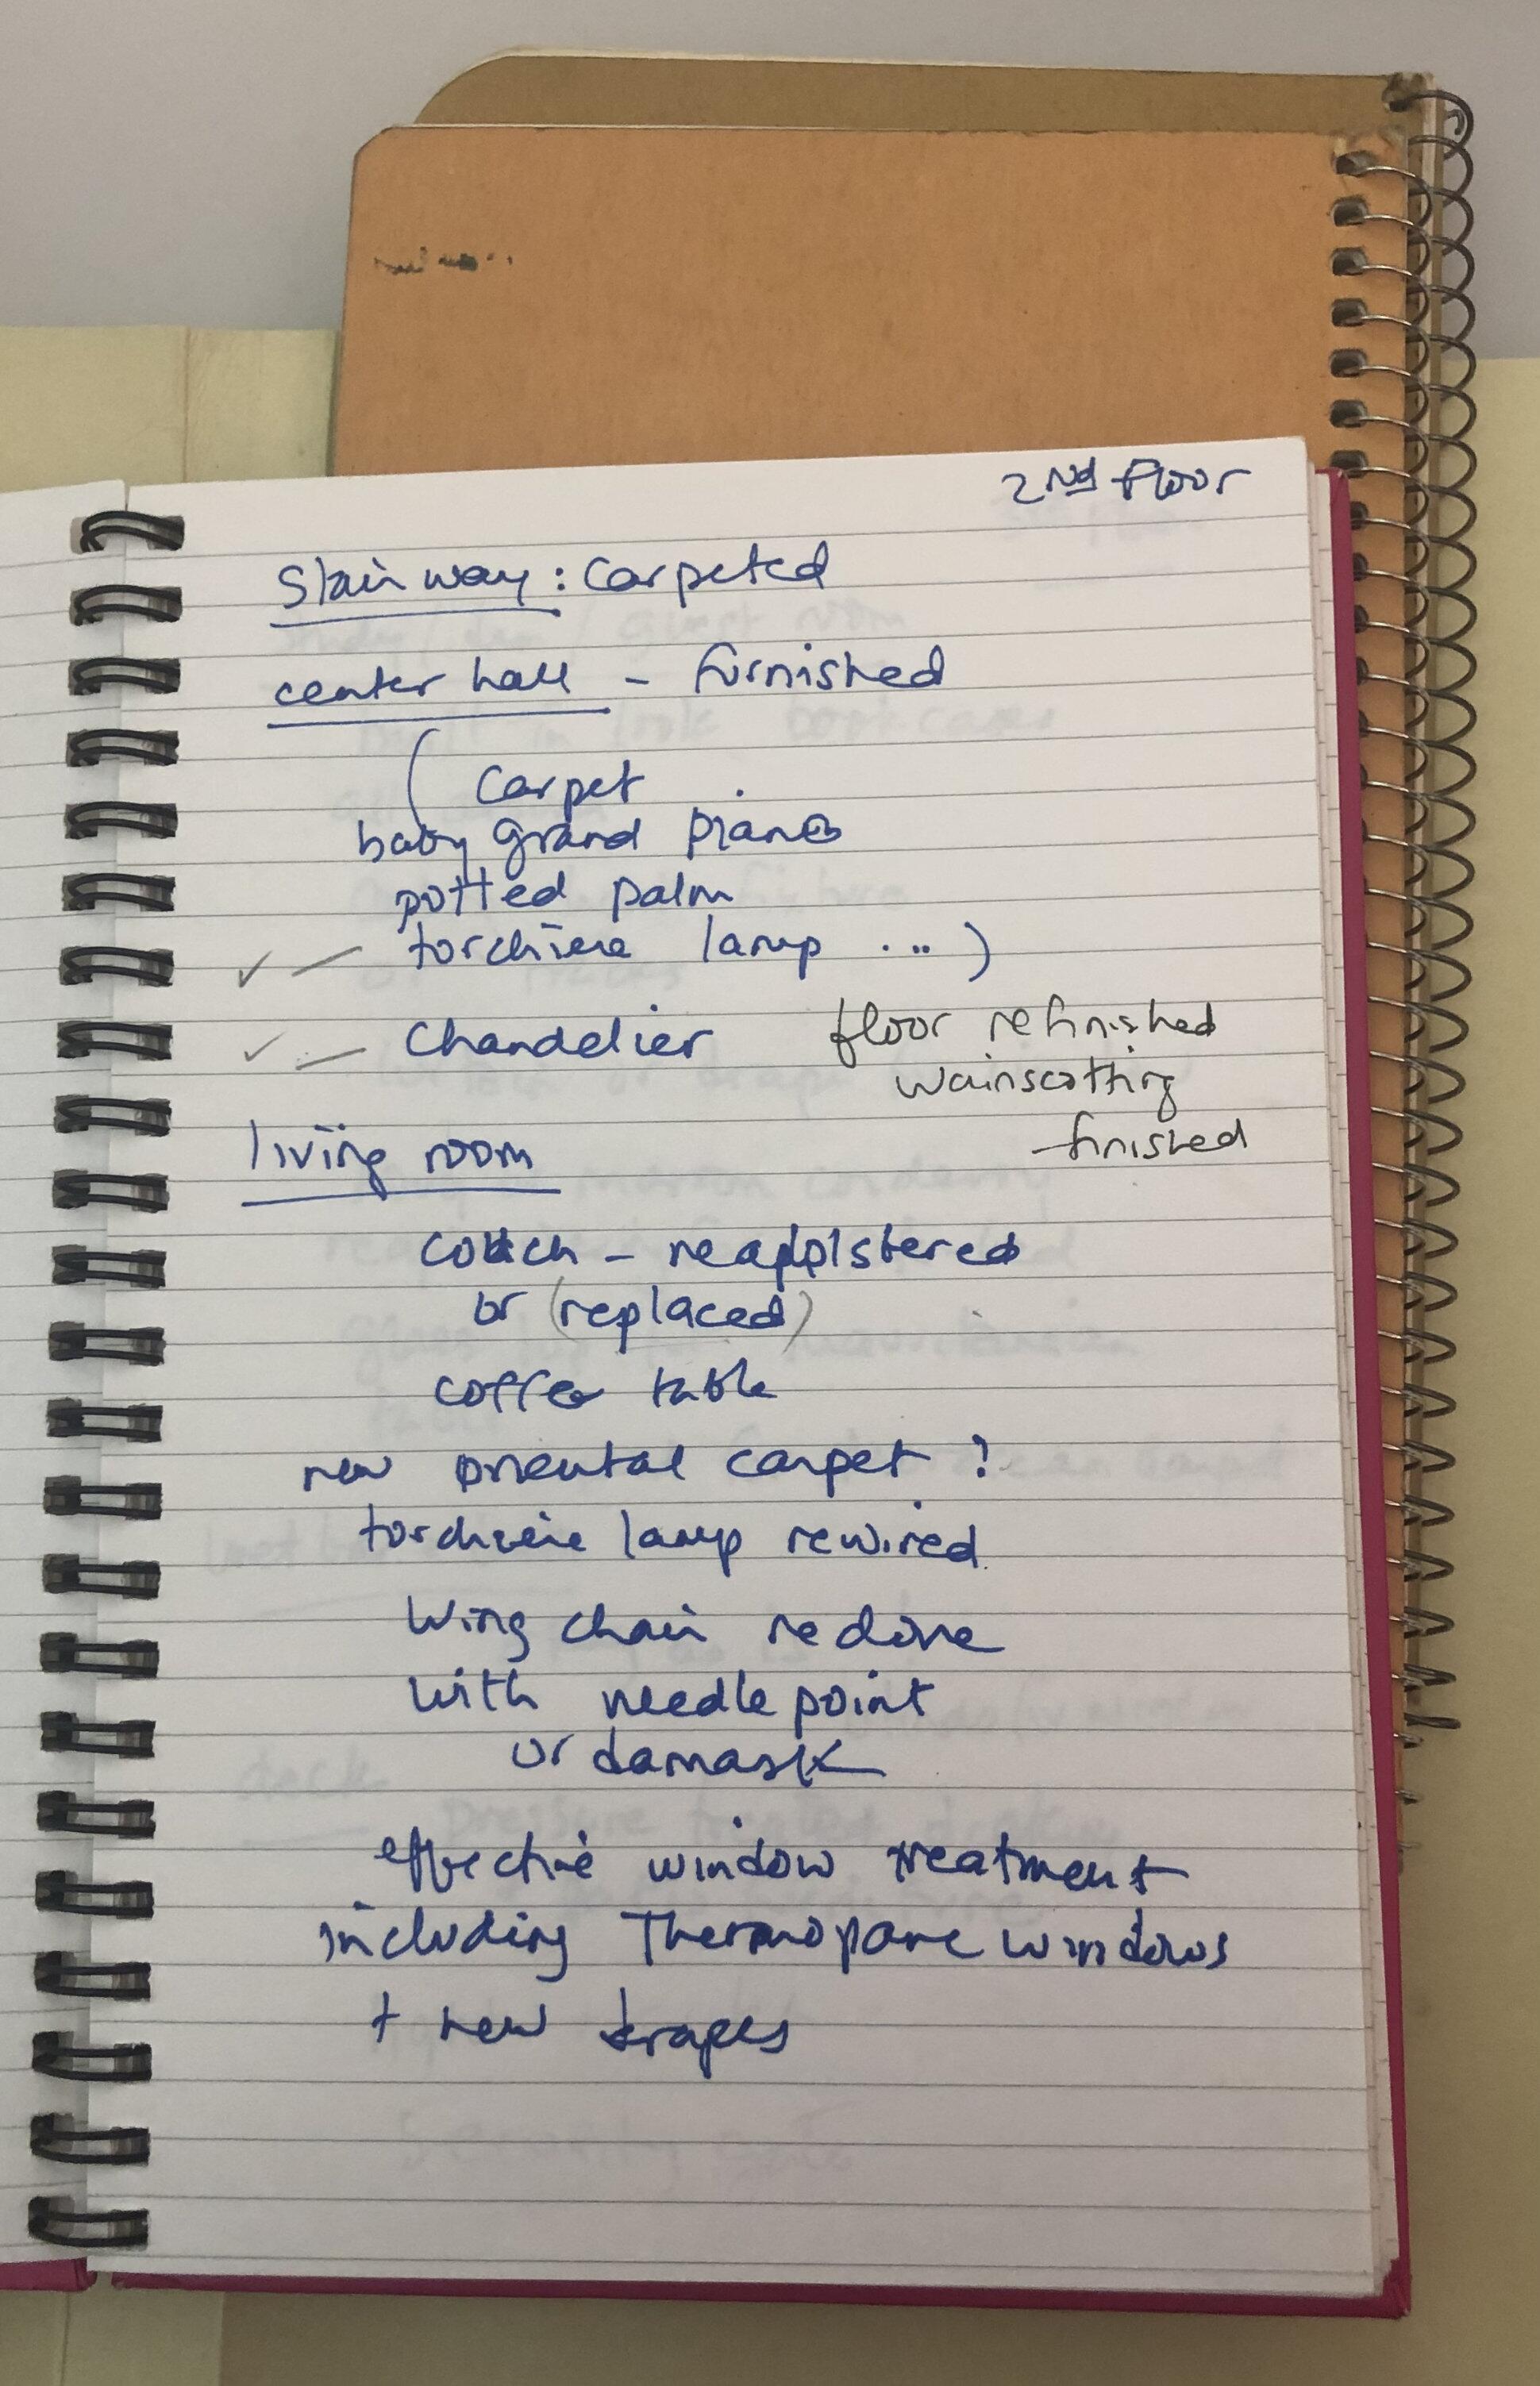 2nd Floor
Stairway: Carpeted
center hall - furnished
( Carpet
baby grand piano
potted palm
✓ — torchiere lamp ... )
✓ — Chandelier floor refinished
wainscotting
finished
living room
couch - reapplstered
or (replaced)
coffee table
new oriental carpet ?
torchiere lamp rewired
Wing chair redone
with needlepoint
or damask
effective window treatment
including Thermopane windows
+ new drapes